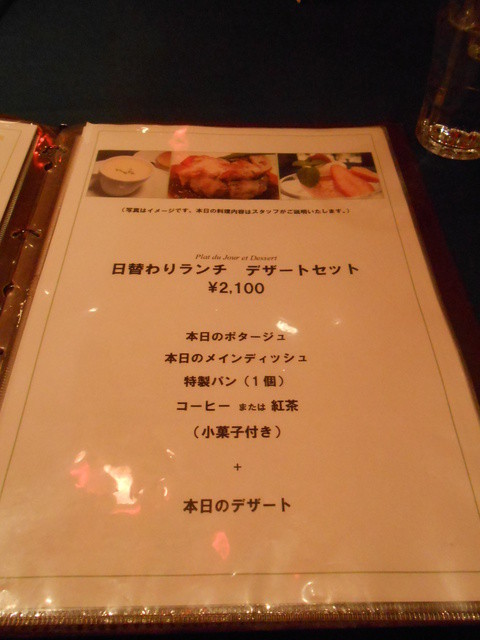 (写真はイメージです。本日の料理内容はスタッフがご説明いたします。)
Plat du Jour et Dessert
日替わりランチ　デザートセット
¥2,100
本日のポタージュ
本日のメインディッシュ
特製パン（１個）
コーヒー または 紅茶
（小菓子付き）
+
本日のデザート